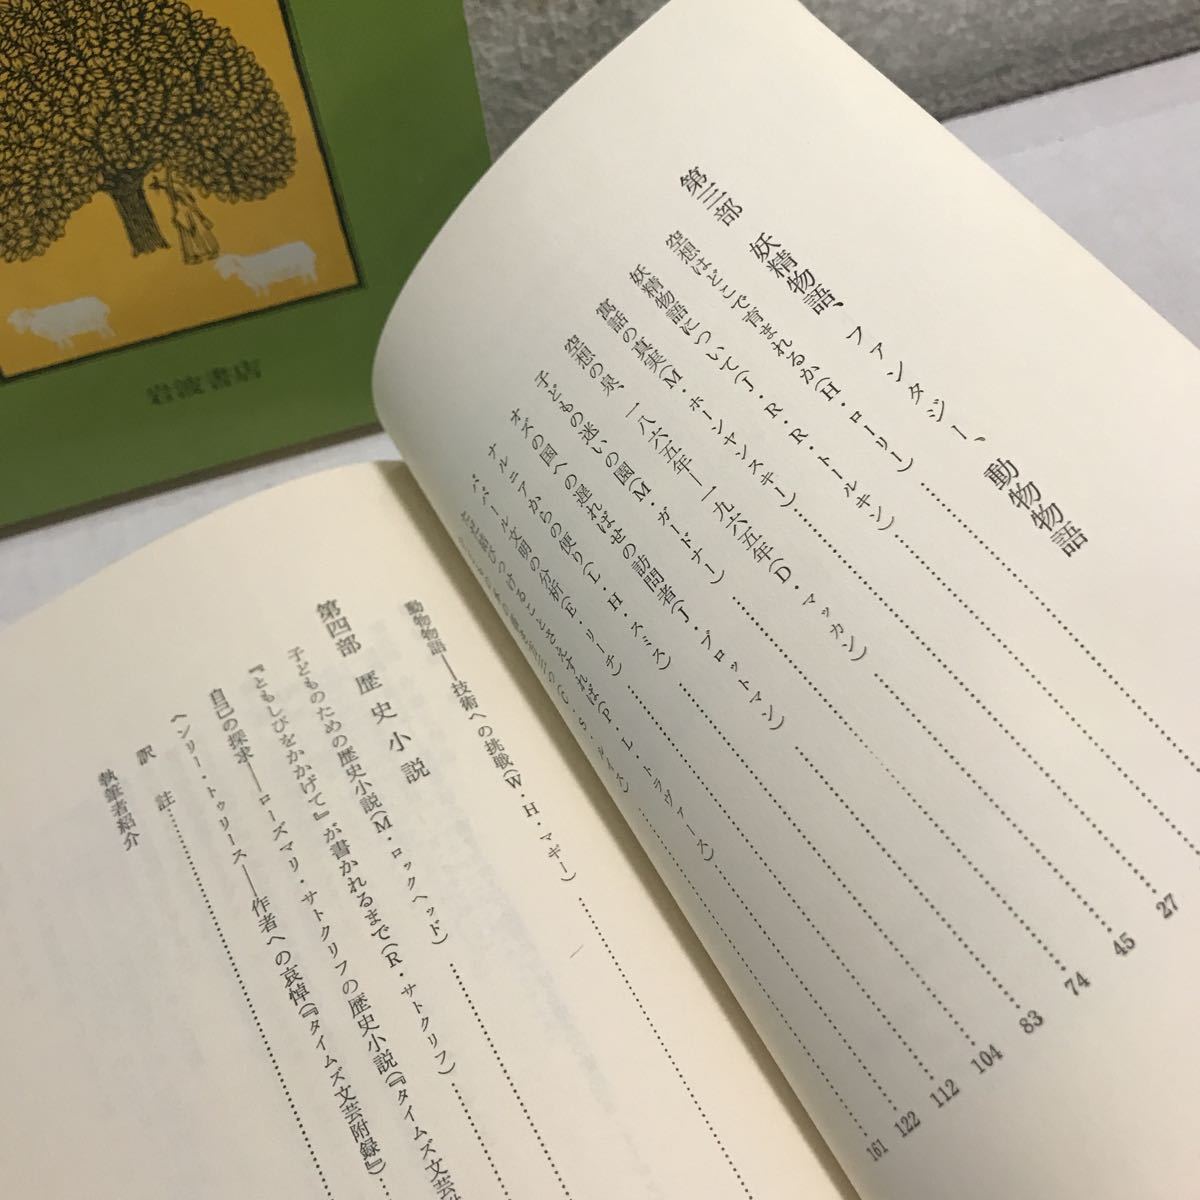 岩波書店
第三部　妖精物語、ファンタジー、動物物語
空想はどこで育まれるか(H・ローリー)……27
妖精物語について(J・R・R・トールキン)……45
寓話の真実(M・ホーンヤンスキー)……74
空想の泉、一八六五年―一九六五年(D・マッカン)……83
子どもの迷いの園(M・ガードナー)……104
オズの国への遅ればせの訪問者(J・ブロットマン)……112
ナルニアからの便り(L・H・スミス)……122
ババール文明の分析(E・リーチ)……161
ただ結びつけることさえすれば(P・L・トラヴァース)……
(C・S・ルイス)……
動物物語――技術への挑戦(W・H・マギー)……
第四部　歴史小説
子どものための歴史小説(M・ロックヘッド)……
『ともしびをかかげて』が書かれるまで(R・サトクリフ)……
自己の探求――ローズマリ・サトクリフの歴史小説(『タイムズ文芸
ヘンリー・トゥリース――作者への哀悼(『タイムズ文芸附録』)
訳　註……
執筆者紹介